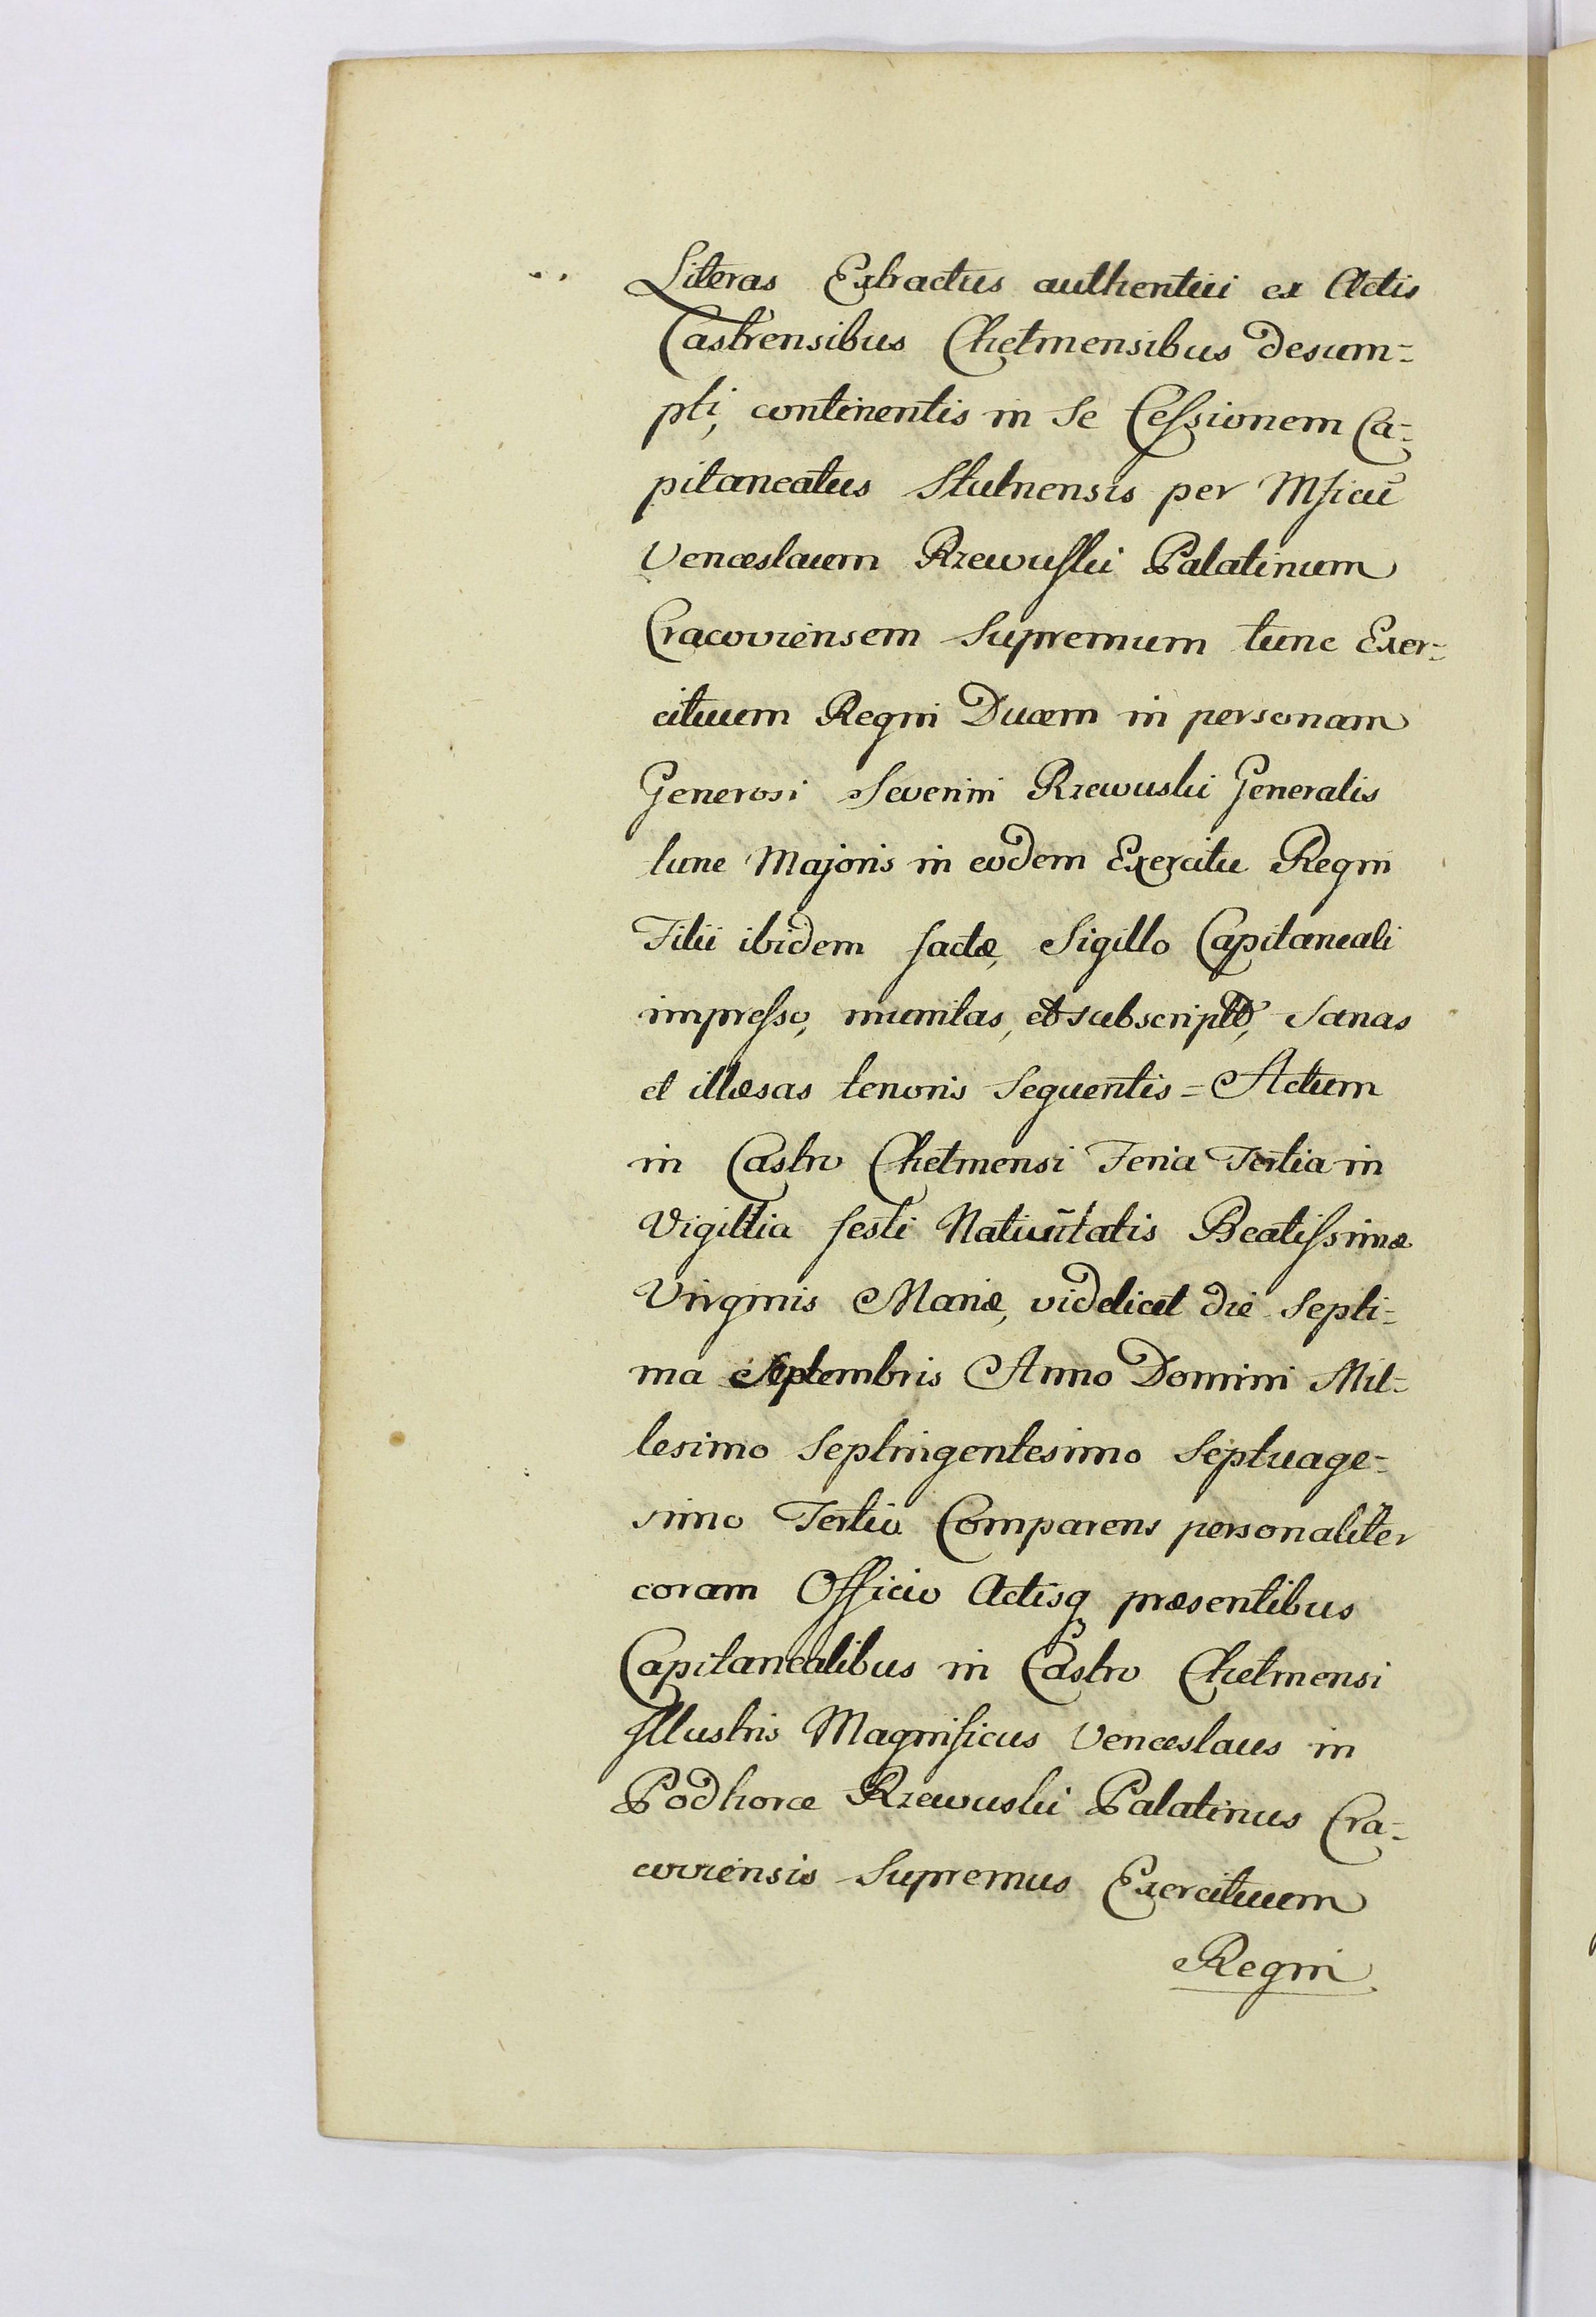 Literas Extractus authentici ex Actis
Castrensibus Chełmensibus desum=
pti, continentis in se Cessionem Ca=
pitaneatus Stulnensis per Mficū
Venceslaum Rzewuski Palatinum
Cracoviensem Supremum tunc Exer=
cituum Regni Ducem in personam
Generosi Severini Rzewuski Generalis
tunc Majoris in eodem Exercitu Regni
Filii ibidem factæ, Sigillo Capitaneali
impresso, munitas, et subscript, sanas
et illæsas tenoris Sequentis = Actum
in Castro Chełmensi Feria Tertia in
Vigillia festi Nativitatis Beatissimæ
Virginis Mariæ, videlicet die Septi=
ma Septembris Anno Domini Mil=
lesimo Septingentesimo Septuage=
simo Tertio Comparens personaliter
coram Officio Actisq præsentibus
Capitanealibus in Castro Chełmensi
Illustris Magnificus Venceslaus in
Podhorce Rzewuski Palatinus Cra=
coviensis Supremus Exercituum
Regni